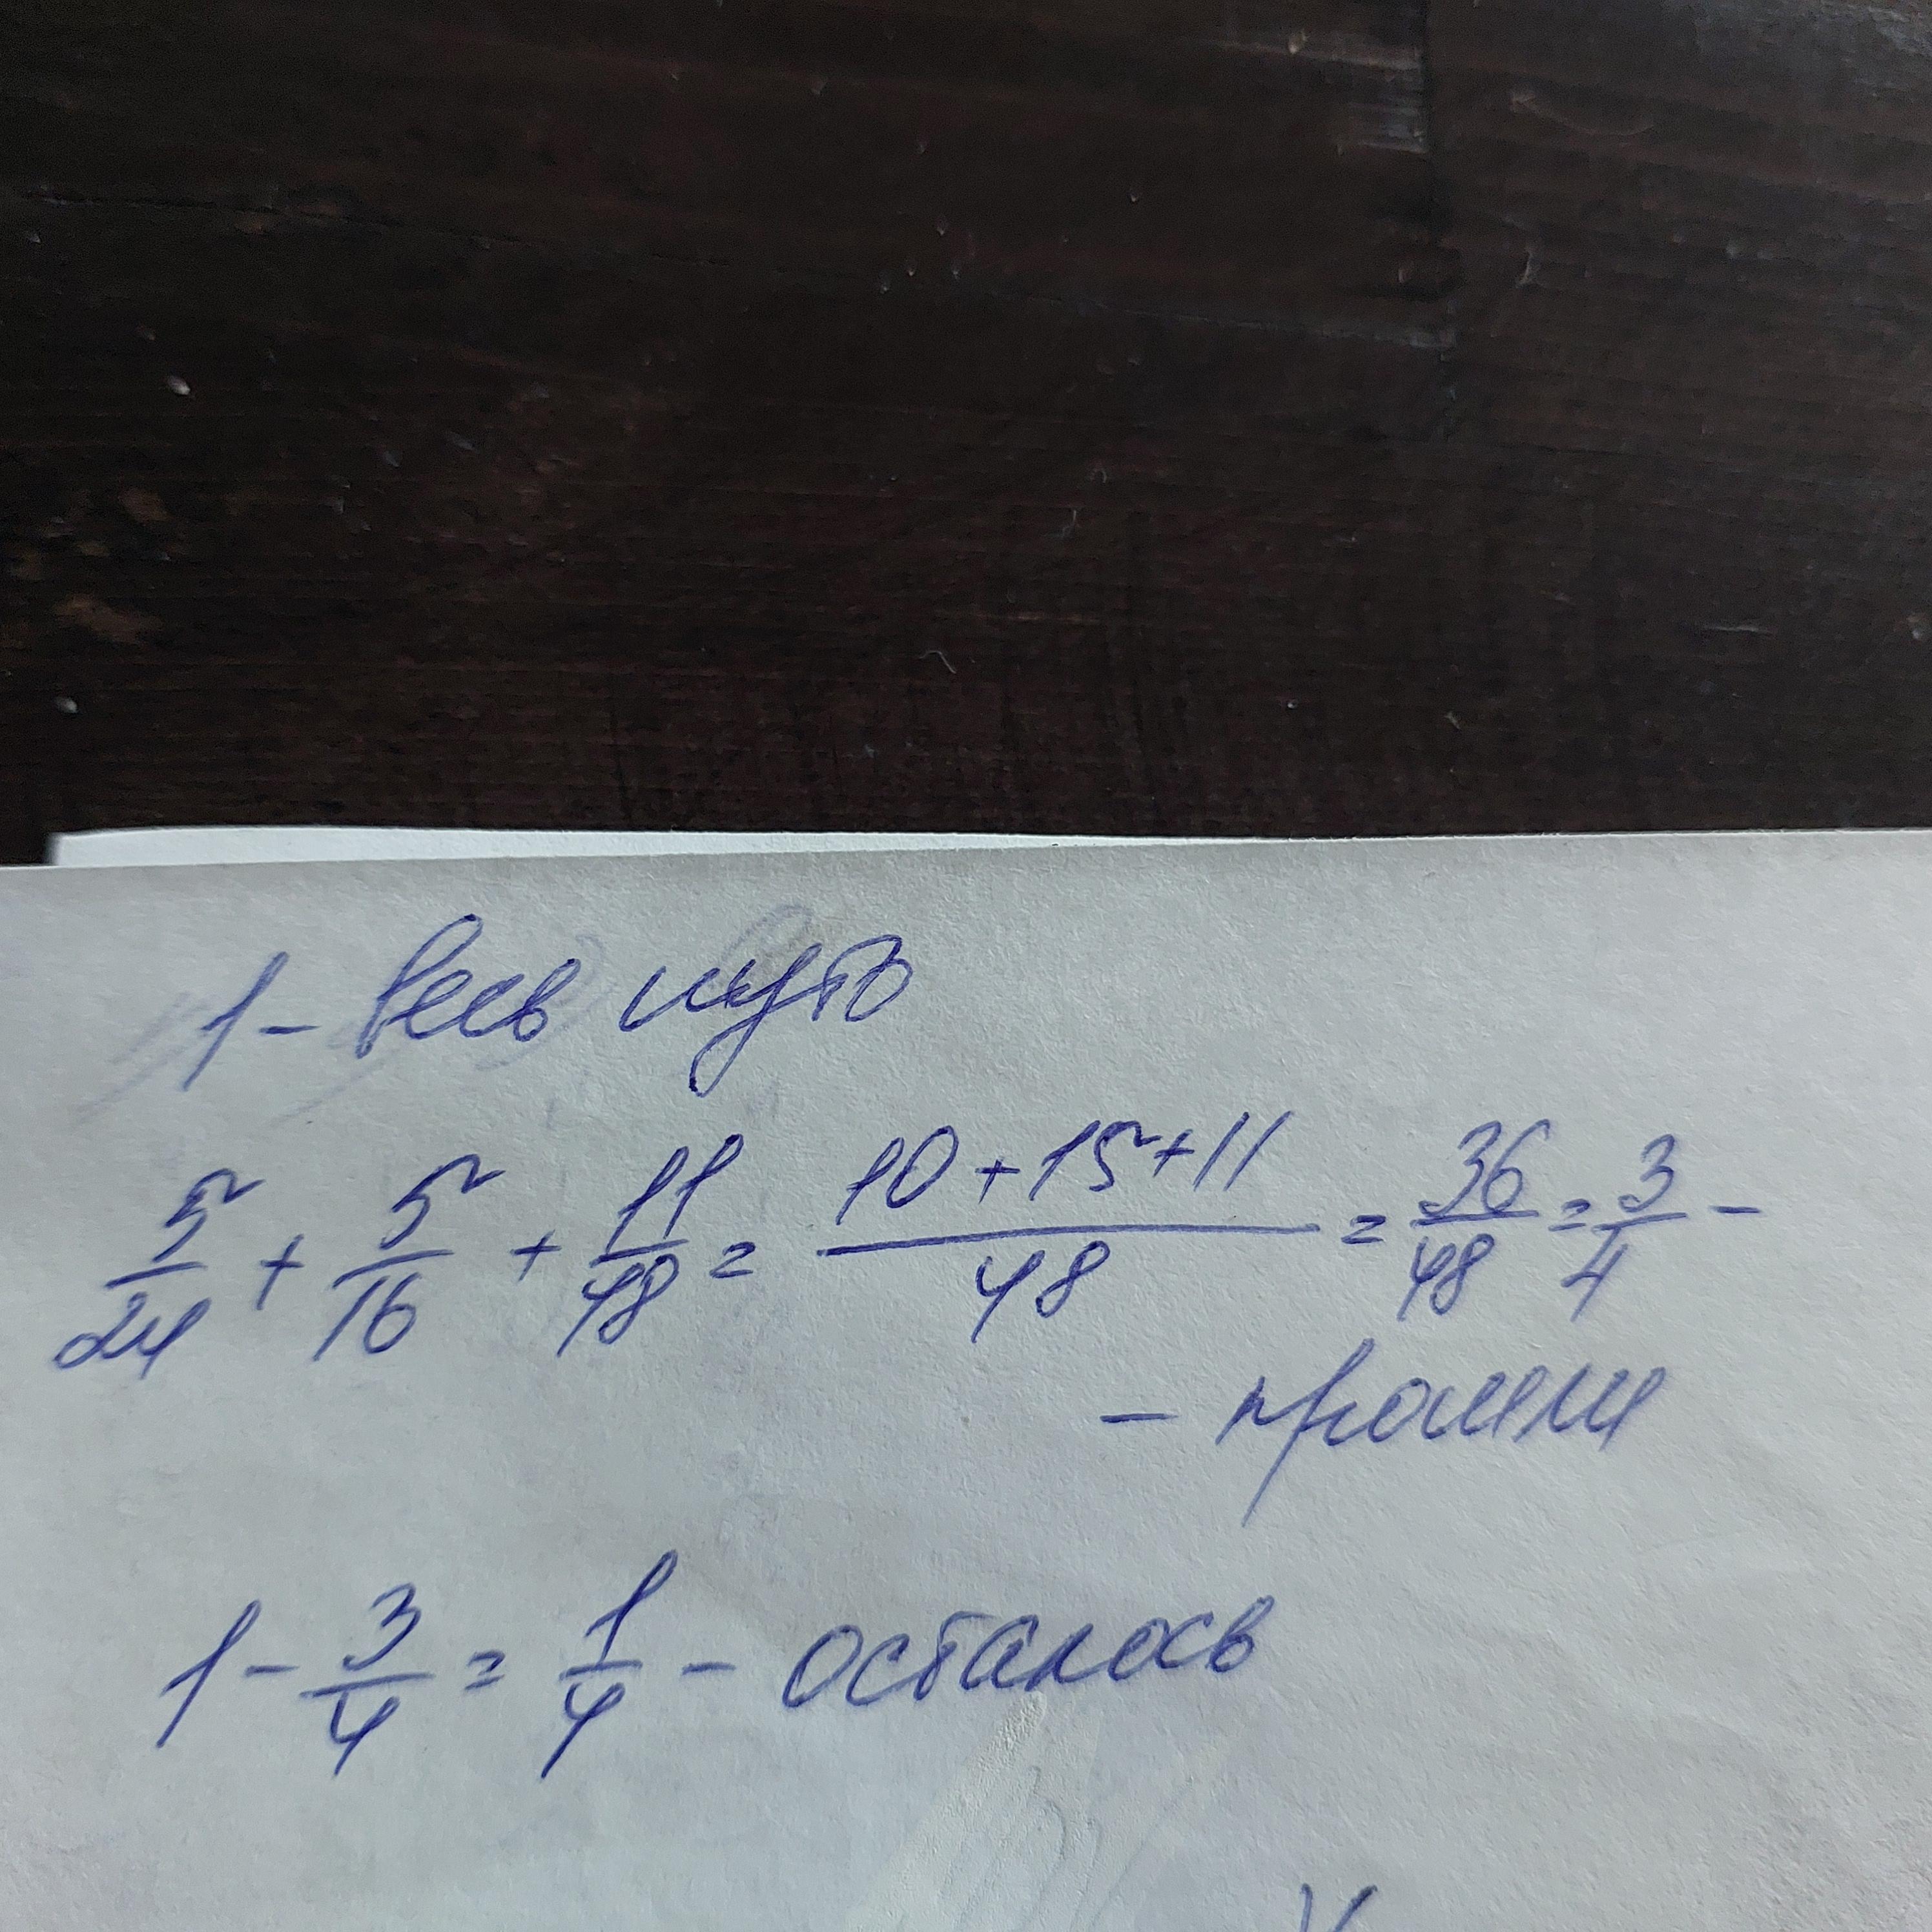 1 - весь путь
5/24 + 5/16 + 11/48 = (10 + 15 + 11)/48 = 36/48 = 3/4 -
- прошли
1 - 3/4 = 1/4 - осталось